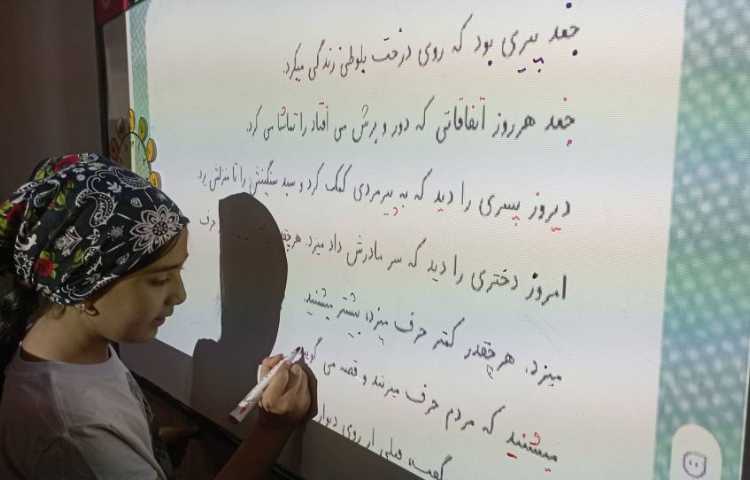 جغد پیری بود که روی درخت بلوطی زندگی میکرد.
جغد هرروز اتفاقاتی که دور و برش می افتاد را تماشا می کرد.
دیروز پسری را دید که به پیرمردی کمک کرد و سبد سنگینش را تا منزلش برد
امروز دختری را دید که سر مادرش داد میزد هرچقدر حرف
میزد، هرچقدر کمتر حرف میزد، بیشتر میشنید.
میشنید که مردم حرف میزنند و قصه می گویند
گفت قبلی از روی دیوار